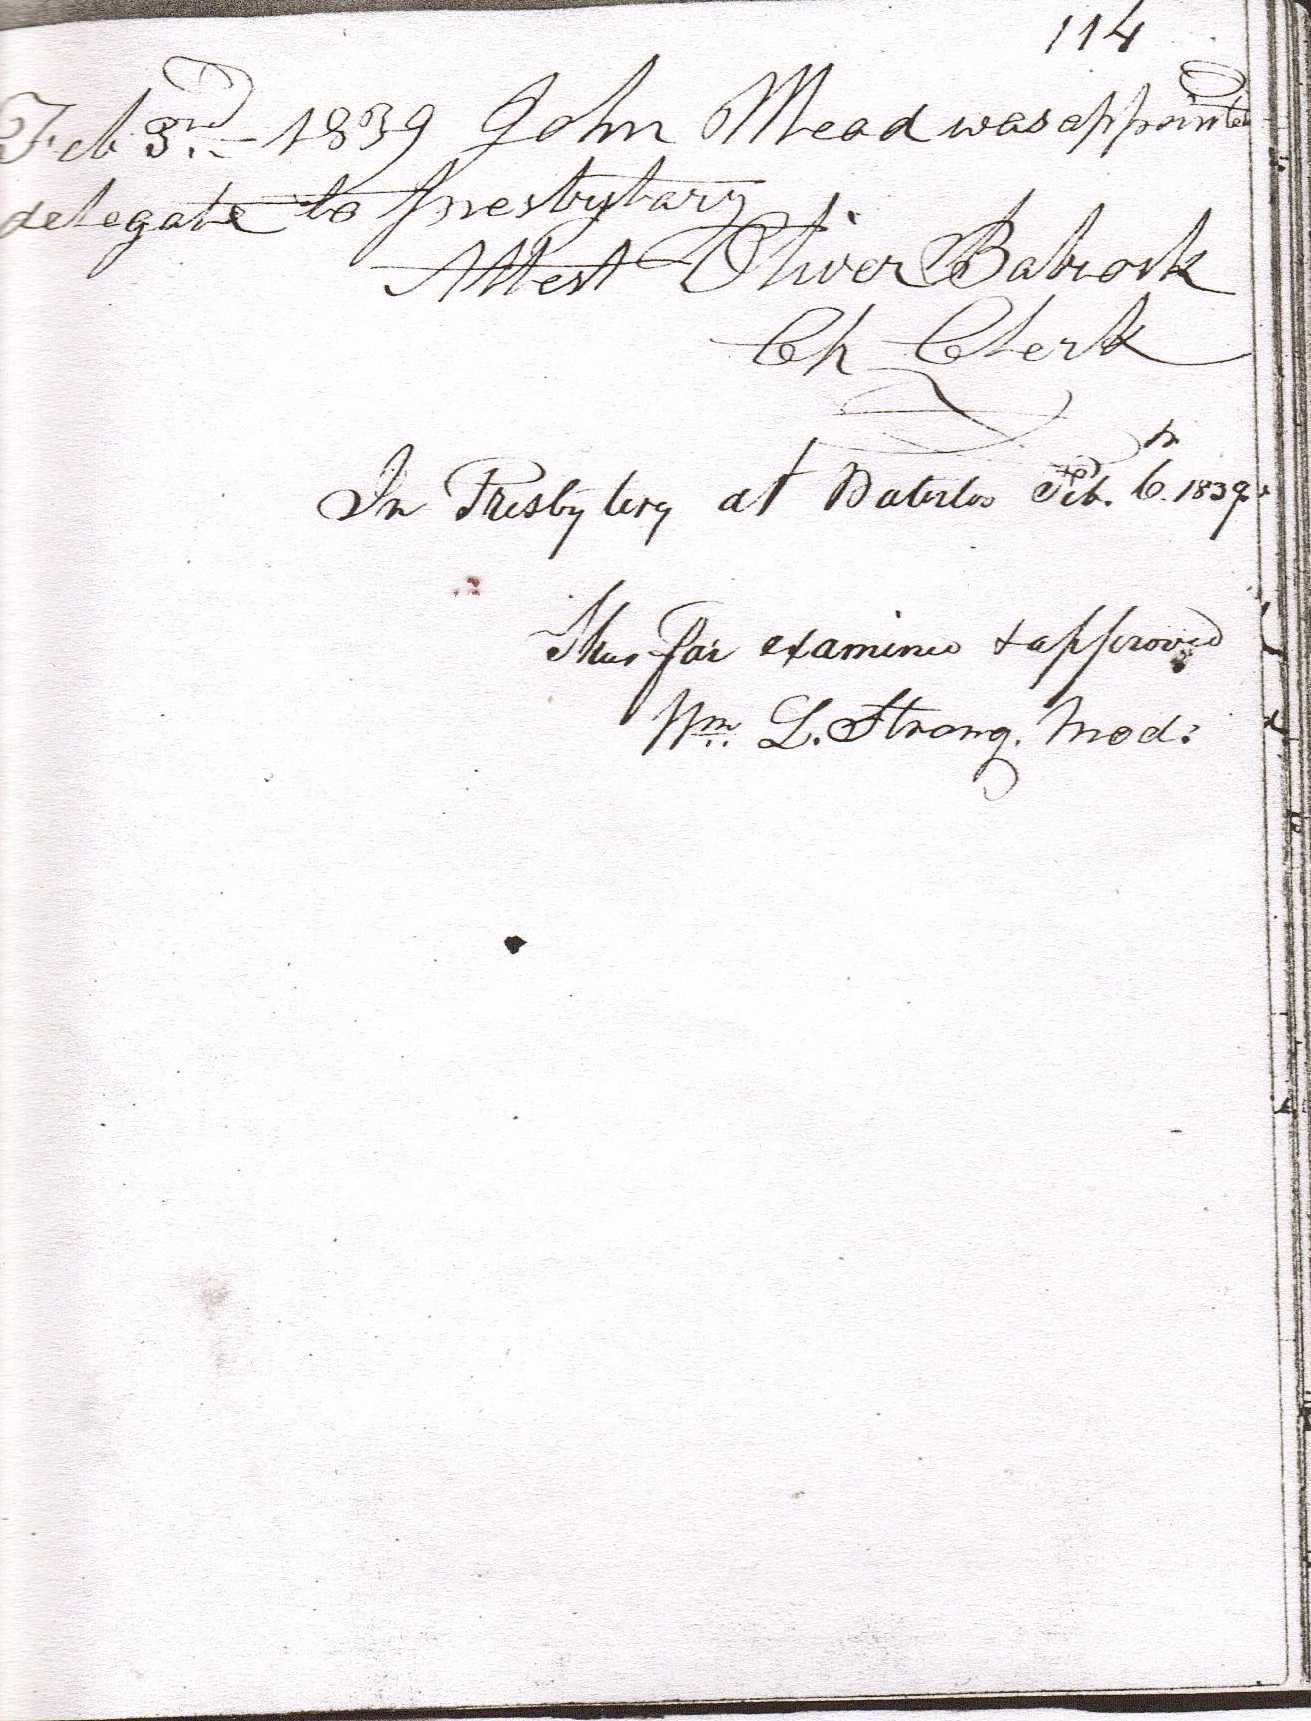 114
Feb 3rd - 1839 John Mead was appointed
delegate to presbytary
Attest Oliver Babcock
Ch Clerk
In Presbytery at Waterloo Feb. 6th 1839.
Thus far examined & approved
Wm. L. Strong. Mod: